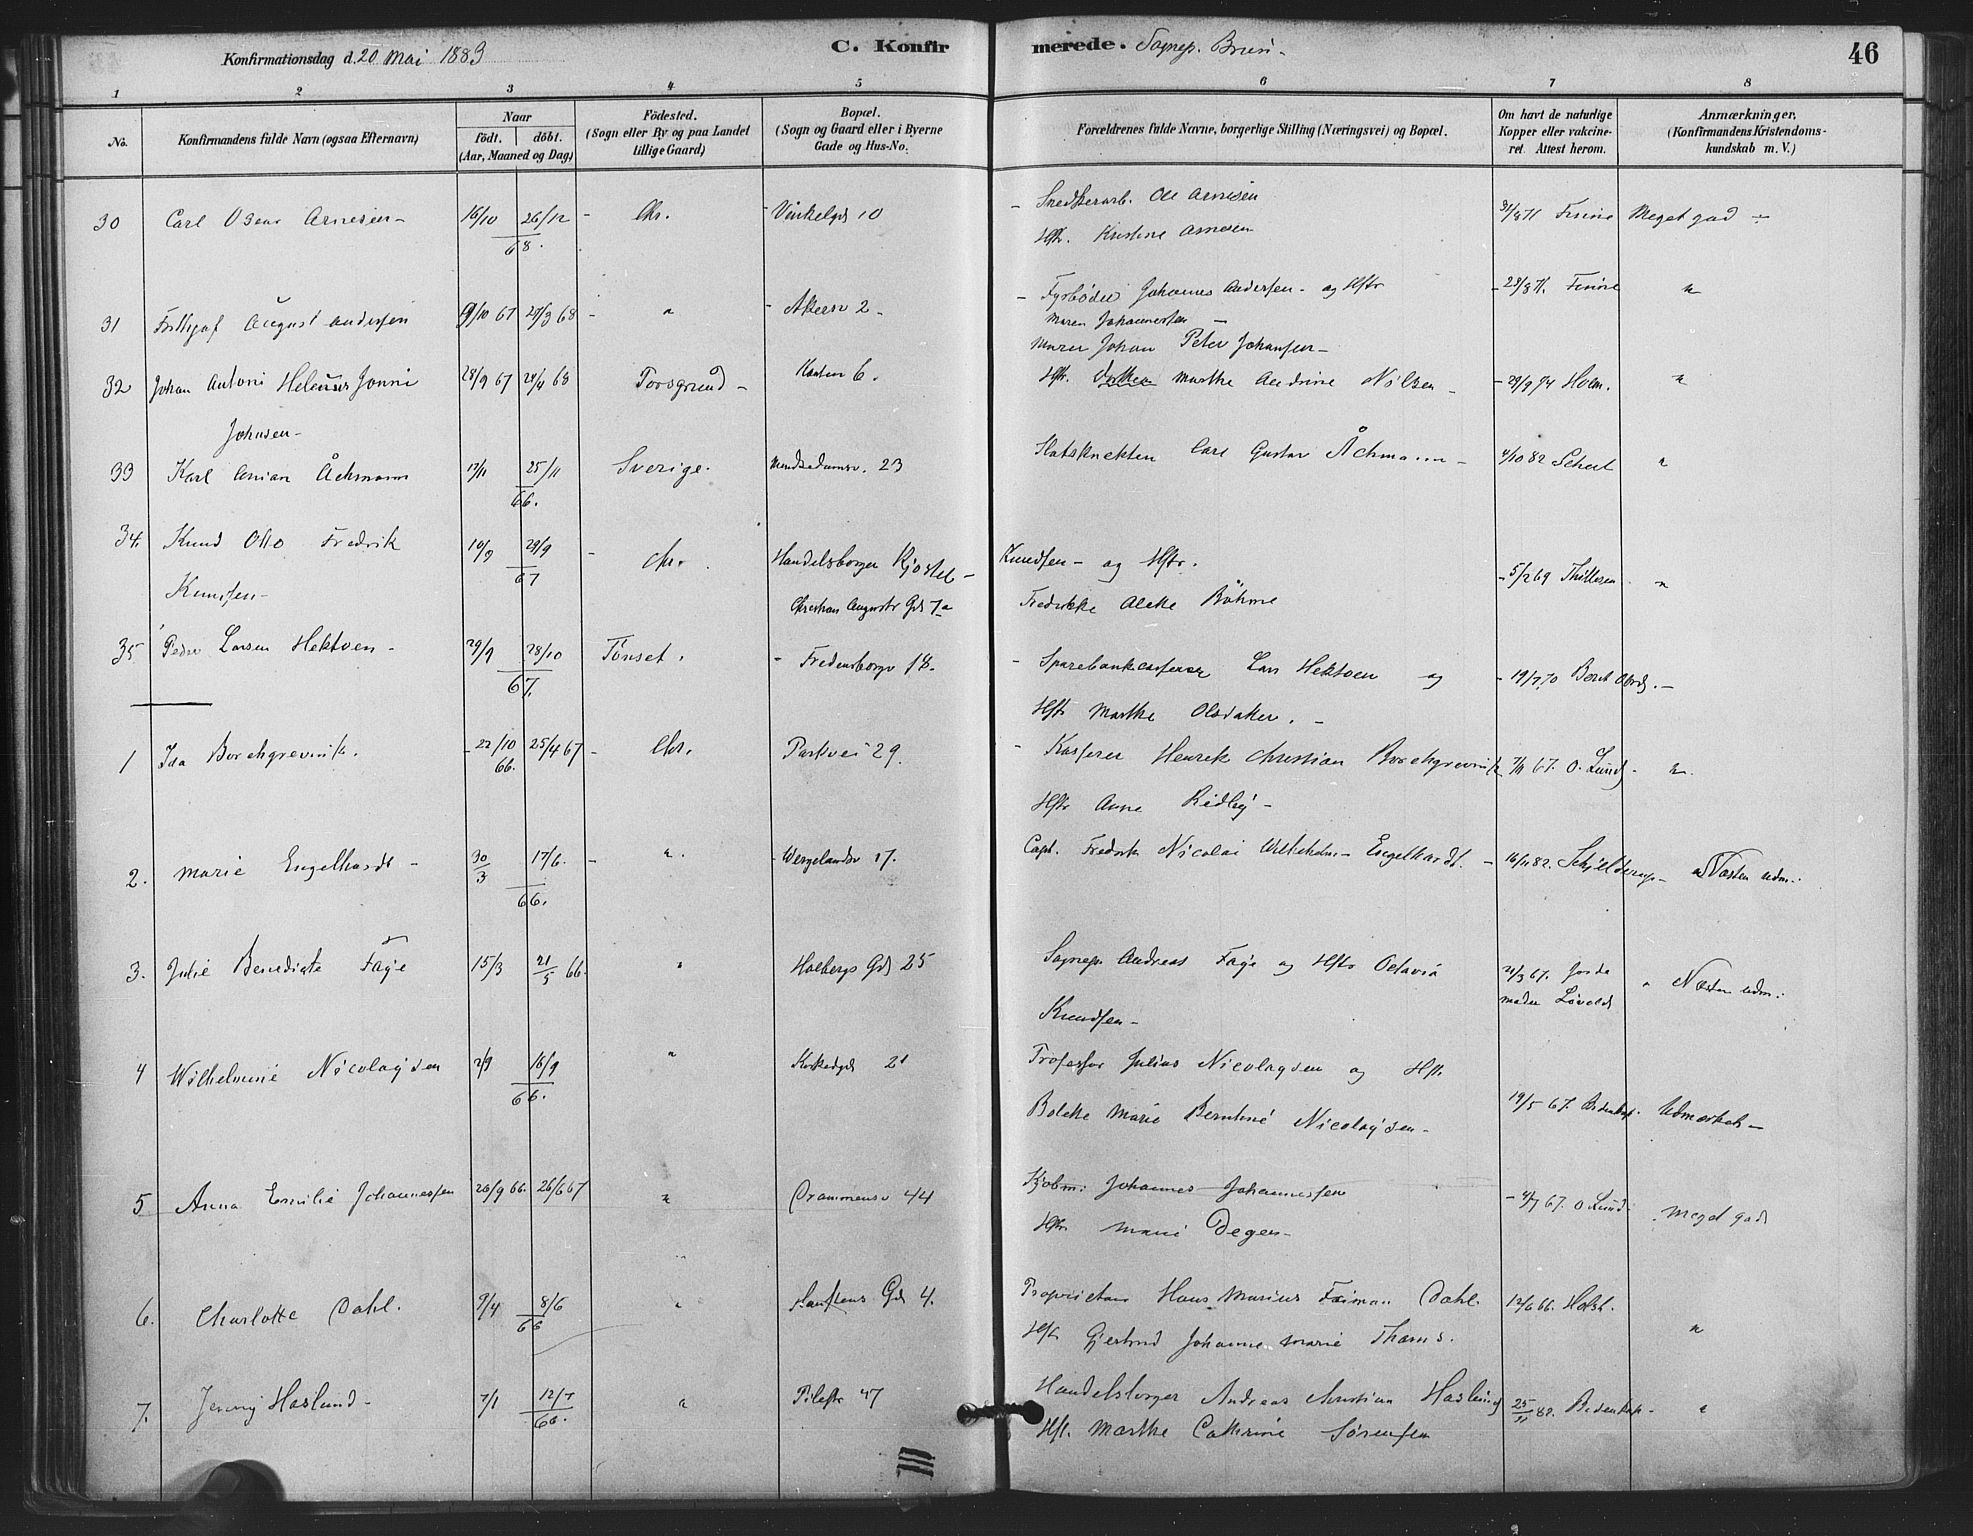 Konfirmationsdag d. 20 Mai 1883 C. Konfirmerede. Sognep. Bruun - 46
1 2 3 4 5 6 7 8
No.
Konfirmandens fulde Navn (ogsaa Efternavn)
Naar
födt. döbt.
(Aar, Maaned og Dag)
Födested.
(Sogn eller By og paa Landet
tillige Gaard)
Bopæl.
(Sogn og Gaard eller i Byerne
Gade og Hus-No.
Forældrenes fulde Navne, borgerlige Stilling (Næringsvei) og Bopæl.
Om havt de naturlige
Kopper eller vakcine-
ret. Attest herom.
Anmærkninger,
(Konfirmandens Kristendoms-
kundskab m. V.)
30 Carl Oscar Arnesen - 16/10 26/12 68. - Chr. - Vinkelgd 10 - Snedkerarb. Ole Arnesen 31/8 71 Meget god -
Hstr. Kristine Arnesen
31 Frithjof August Andersen 9/10 67 29/3 68 - " - Akersv 2 - - Fyrböder Johannes Andersen - og Hstr - 28/8 71. "
Maren Johannesen -
Murer Johan Peter Johansen -
32 Johan Antoni Jonni 28/9 67 24/4 68 - 6. Hstr. Marthe Andrine Nilsen - - 29/9 74 Holm. "
Johnsen -
33 Karl Åchmann 17/11 25/11 66. Sverige. 23 Carl Gustav Åchmann - 4/10 82 "
34. Knud Otto Fredrik 10/9 29/9 67 - Chr. Handelsborger Kjostel - Knudsen - og Hstr. - 5/2 69 Thillesen "
Knudsen - Christian Augusts Gd 7a Fredrikke Böhme
35 Peder Larsen Hektoen - 29/9 28/10 67. Tönset. - Fredensborgv 18. - Sparebankcasserer Lars Hektoen og - 19/7 70 -
Hstr Marthe -
1 Ida Borchgrevink. - 22/10 66. 25/4 67 - Chr. Parkvei 29. - Kasserer Henrik Christian Borchgrevink 7/11 67. O. Lund - "
Hstr Anne Ridley -
2. Marie Engelhardt - 30/3 17/6. 66. - " - Wergelandsv 17. Capt. Fredrik Nicolai Wilhelm - Engelhardt. - 16/11 82. Schjelderup - " Næsten udm.
3. Julie Benedicte Faye 15/3 21/5 66. " Holbergs Gd 25 Sognep. Andreas Faye og Hstr Octavia 21/9 67. Jorde " Næsten udm.
Knudsen - moder Løvold
4 Wilhelmine Nicolaysen 2/9 16/9 66. " 21 Professor Julius Nicolaysen og Hstr. 19/5 67. Bidenkap. Udmærket -
Bolette Marie Berntine Nicolaysen -
5 Anna Emilie Johannessen 26/9 66. 26/6 67 " Drammensv 44 Kjøbm: Johannes Johannessen - 4/7 67. O Lund Meget god
Hstr Marie Degen -
6. Charlotte Dahl. 9/4 8/6 66 " Gd 4. Proprietær Hans Marius Dahl 12/6 66. Holst. "
Hstr Gjertrud Johanne Marie Thams.
7. Jenny Haslund - 7/1 12/7 66. " Pilestr 47 Handelsborger Andreas Christian Haslund 25/11 82. Bidenkap - "
Hst. Marthe Cathrine Sörensen